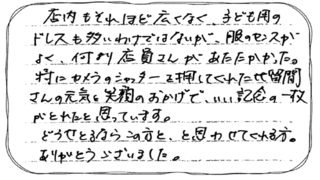 店内もそれほど広くなく、子ども用の
ドレスも多いわけではないが、服のセンスが
よく、何より店員さんがあたたかかった。
特にカメラのシャッターを押してくれた
さんの元気と笑顔のおかげで、いい記念の一枚
がとれたと思っています。
どうせとるならこの方と、と思わせてくれる方。
ありがとうございました。